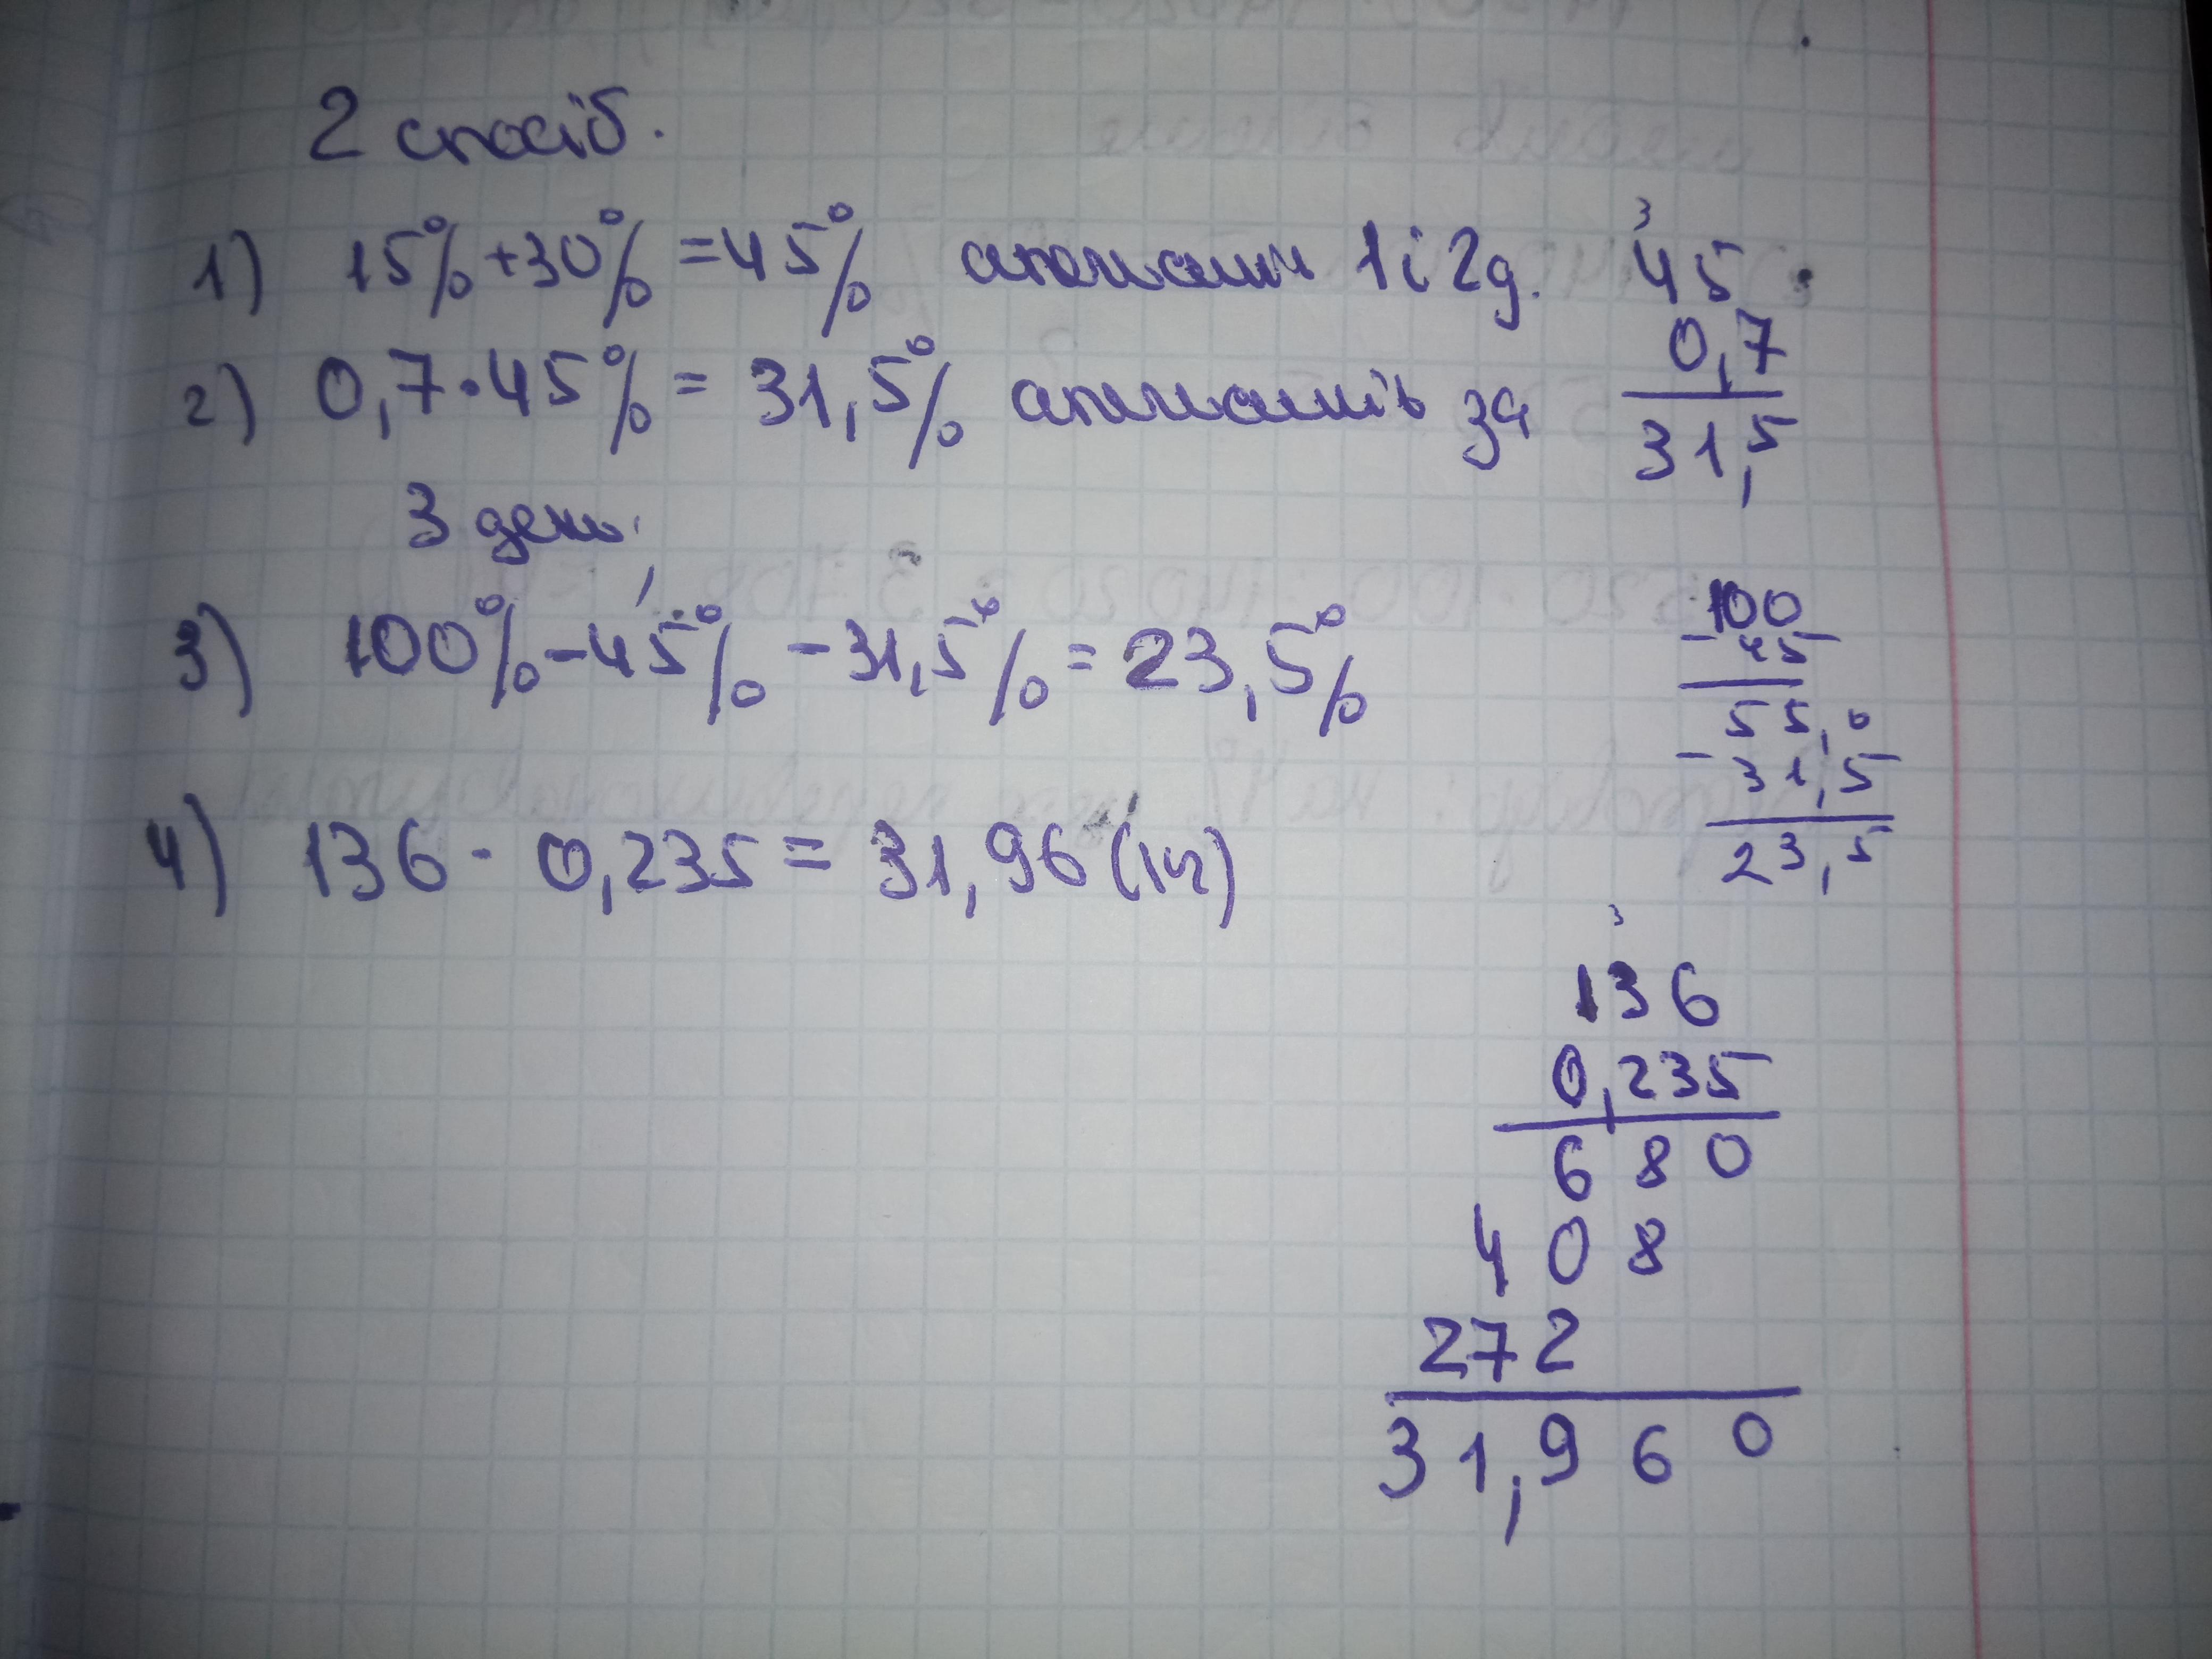 2 спосіб.
1) 15% + 30% = 45% апельсини 1 і 2 д.
2) 0,7 · 45% = 31,5% апельсинів за
3 день.
3) 100% - 45% - 31,5% = 23,5%
4) 136 · 0,235 = 31,96 (кг)
3
45
0,7
31,5
100
- 45
55,0
- 31,5
23,5
3
136
0,235
680
408
272
31,960